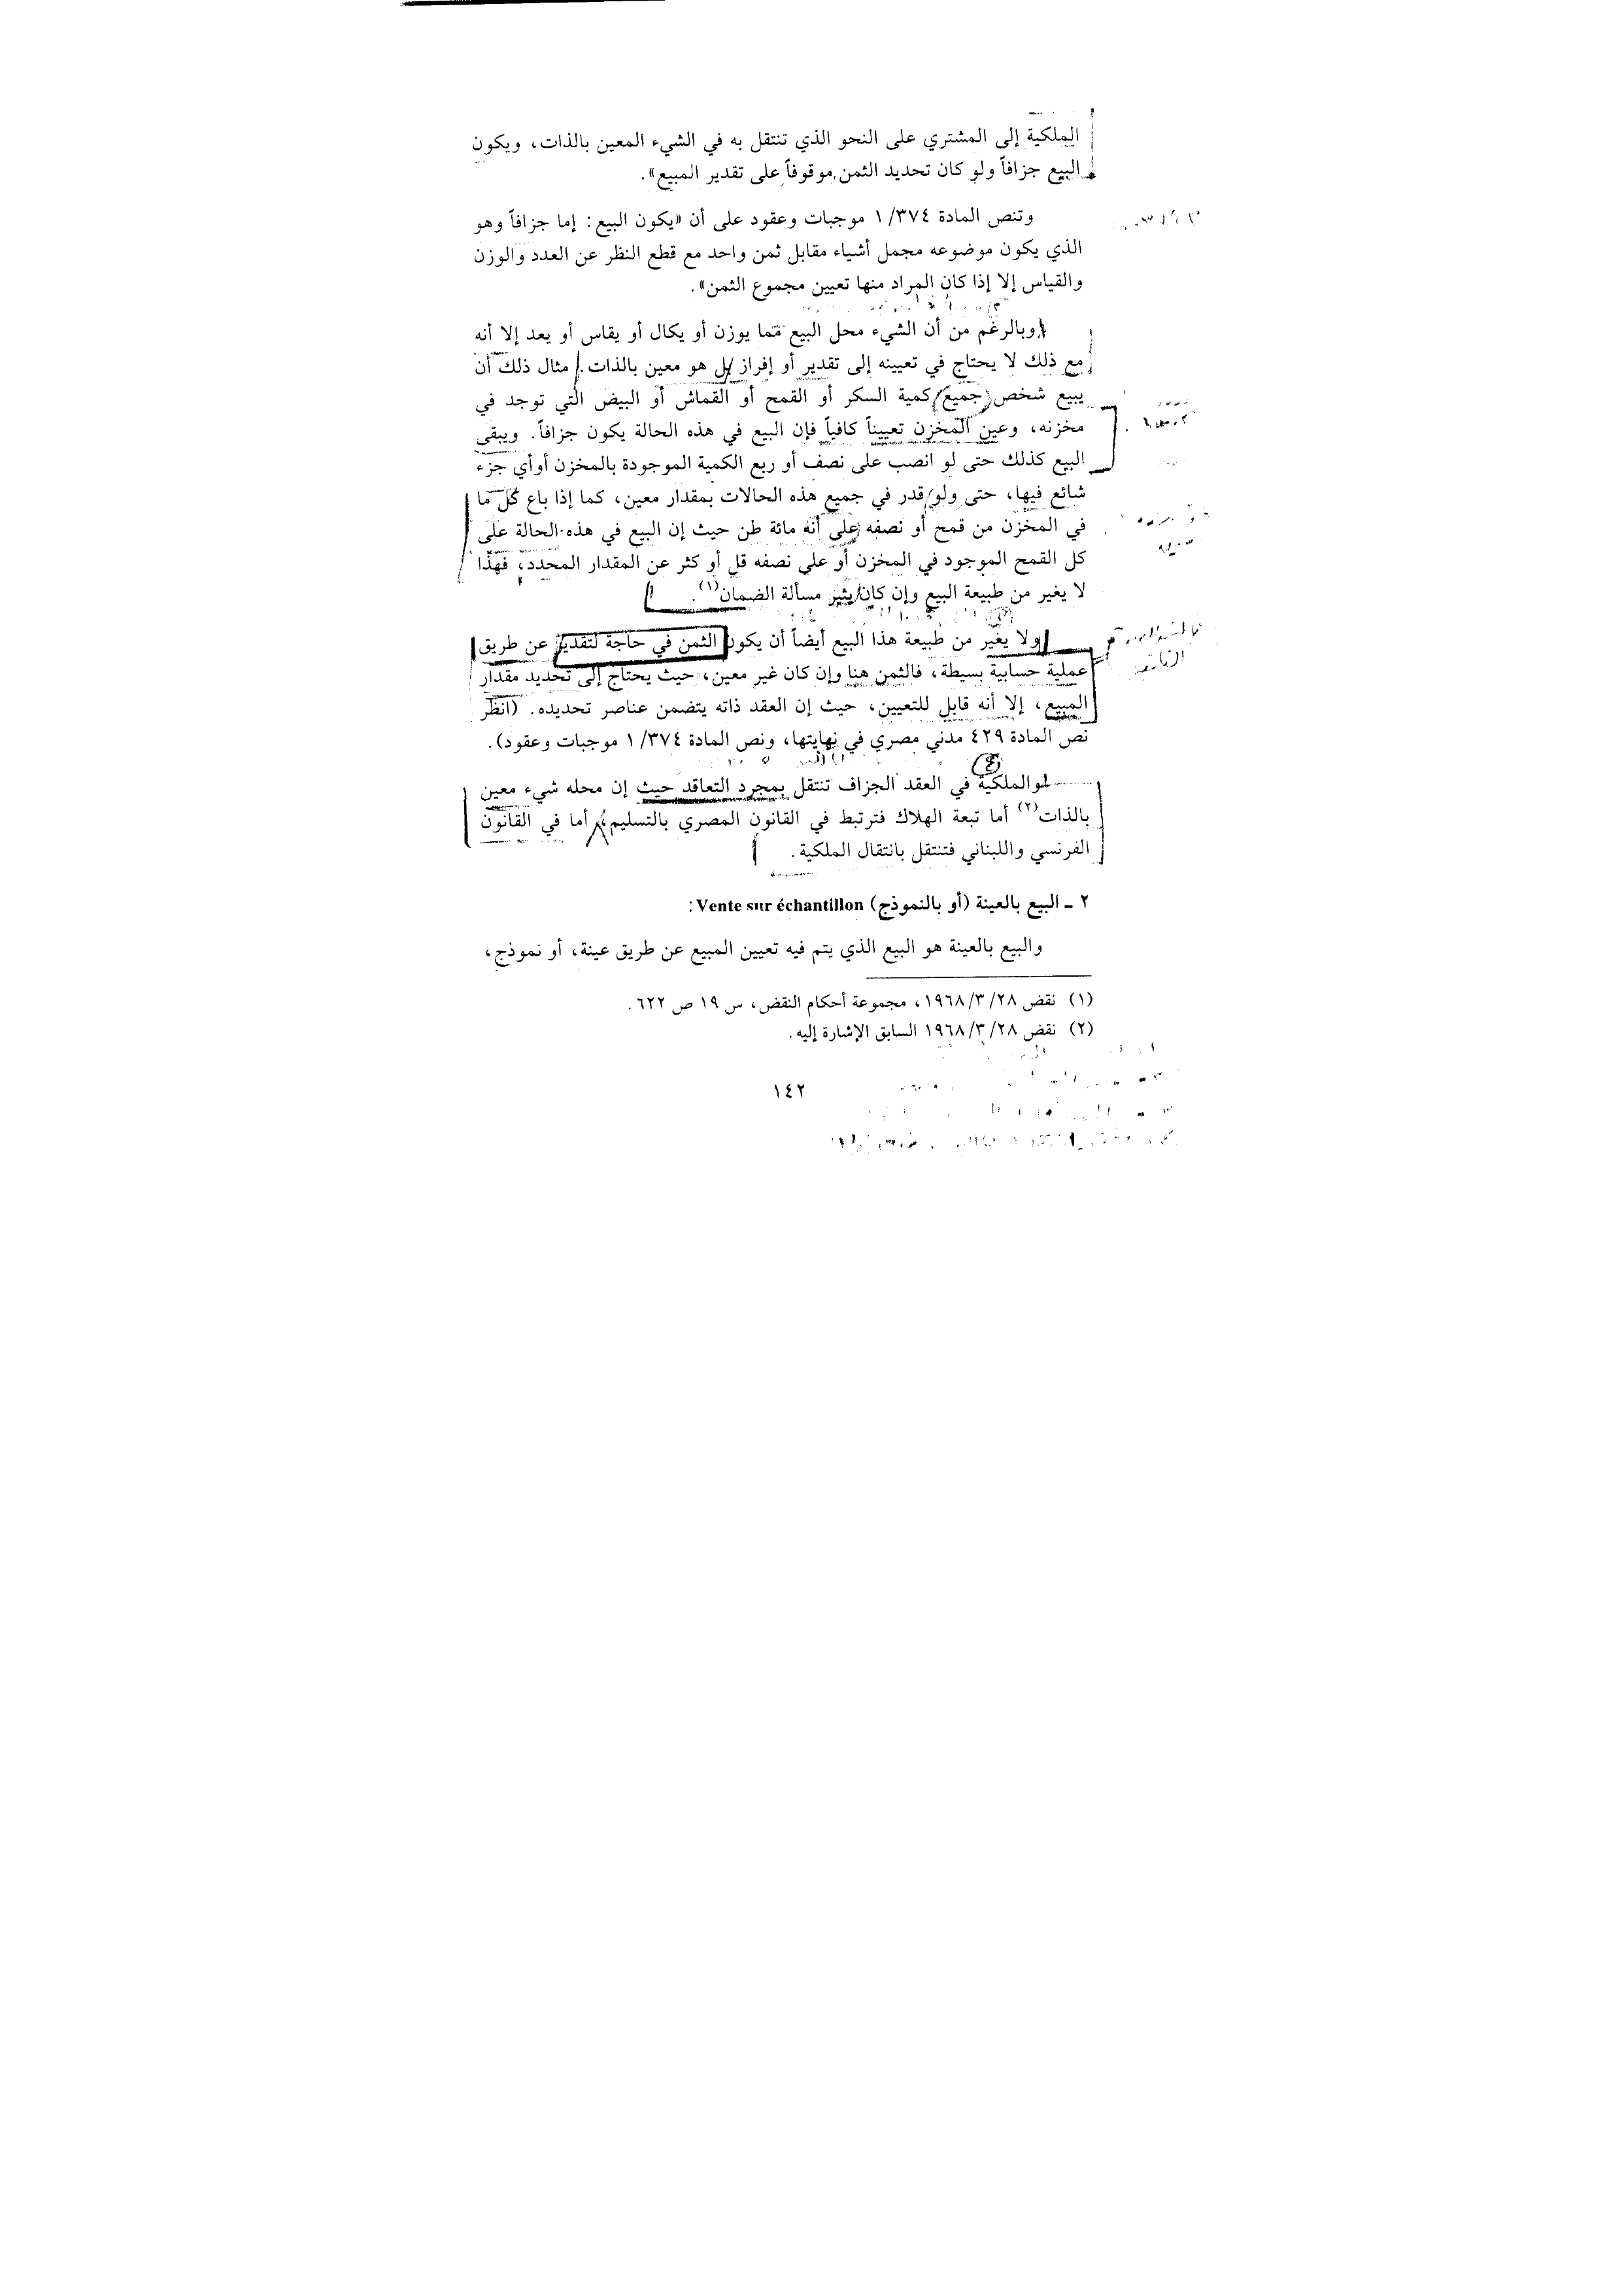 الملكية إلى المشتري على النحو الذي تنتقل به في الشيء المعين بالذات، ويكون
البيع جزافاً ولو كان تحديد الثمن موقوفاً على تقدير المبيع».
وتنص المادة ٣٧٤/ ١ موجبات وعقود على أن «يكون البيع: إما جزافاً وهو
الذي يكون موضوعه مجمل أشياء مقابل ثمن واحد مع قطع النظر عن العدد والوزن
والقياس إلا إذا كان المراد منها تعيين مجموع الثمن».
وبالرغم من أن الشيء محل البيع مما يوزن أو يكال أو يقاس أو يعد إلا أنه
مع ذلك لا يحتاج في تعيينه إلى تقدير أو إفراز بل هو معين بالذات. مثال ذلك أن
يبيع شخص جميع كمية السكر أو القمح أو القماش أو البيض التي توجد في
مخزنه، وعين المخزن تعييناً كافياً فإن البيع في هذه الحالة يكون جزافاً. ويبقى
البيع كذلك حتى لو انصب على نصف أو ربع الكمية الموجودة بالمخزن أوأي جزء
شائع فيها، حتى ولو قدر في جميع هذه الحالات بمقدار معين، كما إذا باع كل ما
في المخزن من قمح أو نصفه على أنه مائة طن حيث إن البيع في هذه الحالة على
كل القمح الموجود في المخزن أو على نصفه قل أو كثر عن المقدار المحدد، فهذا
لا يغير من طبيعة البيع وإن كان يثير مسألة الضمان(١).
ولا يغير من طبيعة هذا البيع أيضاً أن يكون الثمن في حاجة لتقدير عن طريق
عملية حسابية بسيطة، فالثمن هنا وإن كان غير معين، حيث يحتاج إلى تحديد مقدار
المبيع، إلا أنه قابل للتعيين، حيث إن العقد ذاته يتضمن عناصر تحديده. (انظر
نص المادة ٤٢٩ مدني مصري في نهايتها، ونص المادة ٣٧٤/ ١ موجبات وعقود).
والملكية في العقد الجزاف تنتقل بمجرد التعاقد حيث إن محله شيء معين
بالذات(٢) أما تبعة الهلاك فترتبط في القانون المصري بالتسليم، أما في القانون
الفرنسي واللبناني فتنتقل بانتقال الملكية.
٢ ـ البيع بالعينة (أو بالنموذج) Vente sur échantillon:
والبيع بالعينة هو البيع الذي يتم فيه تعيين المبيع عن طريق عينة، أو نموذج،
(١) نقض ٢٨/ ٣/ ١٩٦٨، مجموعة أحكام النقض، س ١٩ ص ٦٢٢.
(٢) نقض ٢٨/ ٣/ ١٩٦٨ السابق الإشارة إليه.
١٤٢